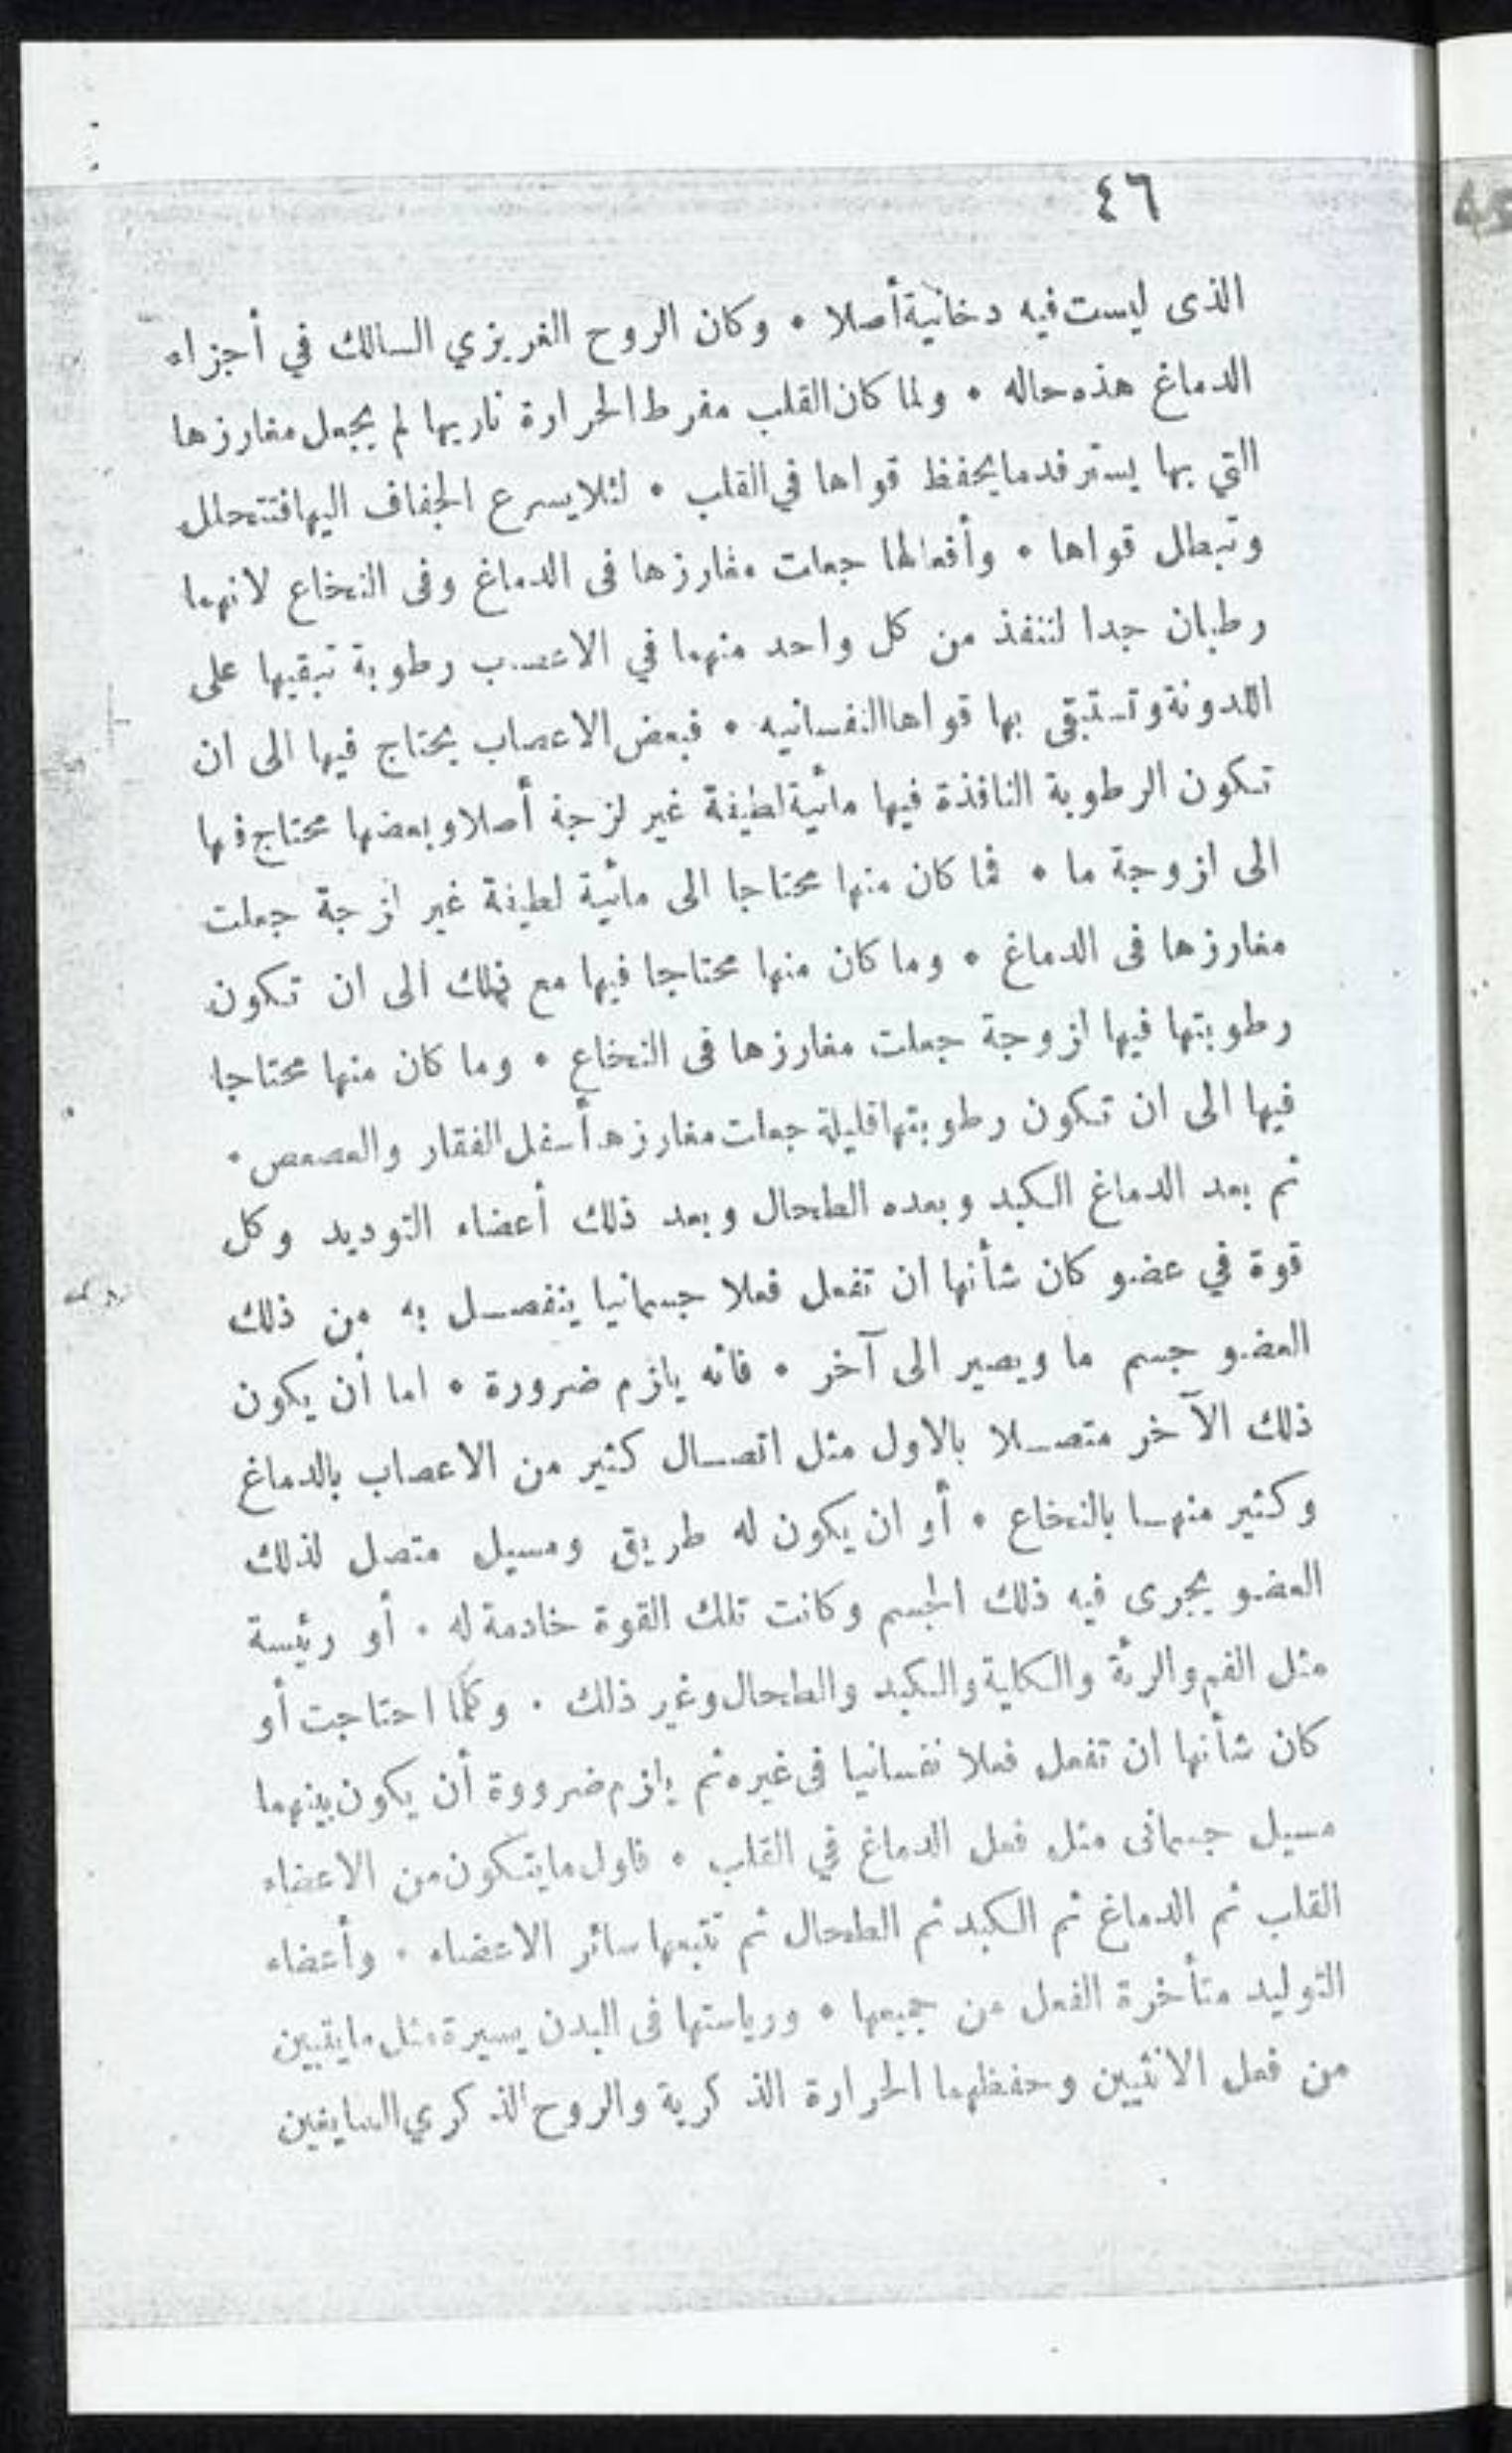 ٤٦
الذى ليست فيه دخانية أصلا • وكان الروح الغريزي السالك في أجزاء
الدماغ هذه حاله • ولما كان القلب مفرط الحرارة ناريها لم يجعل مغارزها
التي بها يسترفد ما يحفظ قواها في القلب • لئلا يسرع الجفاف اليها فتتحلل
وتبطل قواها • وأفعالها جعلت مغارزها فى الدماغ وفى النخاع لانهما
رطبان جدا لتنفذ من كل واحد منهما في الاعصب رطوبة تبقيها على
اللدونة وتستبقى بها قواها النفسانيه • فبعض الاعصاب يحتاج فيها الى ان
تكون الرطوبة النافذة فيها مائية لطيفة غير لزجة أصلا وبعضها محتاج فيها
الى لزوجة ما • فما كان منها محتاجا الى مائية لطيفة غير لزجة جعلت
مغارزها فى الدماغ • وما كان منها محتاجا فيها مع ذلك الى ان تكون
رطوبتها فيها لزوجة جعلت مغارزها فى النخاع • وما كان منها محتاجا
فيها الى ان تكون رطوبتها قليلة جعلت مغارزها أسفل الفقار والعصعص •
ثم بعد الدماغ الكبد وبعده الطحال وبعد ذلك أعضاء التوديد وكل
قوة في عضو كان شأنها ان تفعل فعلا جسمانيا ينفصل به من ذلك
العضو جسم ما ويصير الى آخر • فانه يلزم ضرورة • اما أن يكون
ذلك الآخر متصلا بالاول مثل اتصال كثير من الاعصاب بالدماغ
وكثير منها بالنخاع • أو ان يكون له طريق ومسيل متصل لذلك
العضو يجرى فيه ذلك الجسم وكانت تلك القوة خادمة له • أو رئيسة
مثل الفم والرئة والكلية والكبد والطحال وغير ذلك • وكلما احتاجت أو
كان شأنها ان تفعل فعلا نفسانيا فى غيره ثم يلزم ضرووة أن يكون بينهما
مسيل جسمانى مثل فعل الدماغ في القلب • فاول ما يتكون من الاعضاء
القلب ثم الدماغ ثم الكبد ثم الطحال ثم تتبعها سائر الاعضاء • وأعضاء
التوليد متأخرة الفعل من جميعها • ورياستها فى البدن يسيرة مثل ما يتبين
من فعل الانثيين وحفظهما الحرارة الذكرية والروح الذكري السايغين